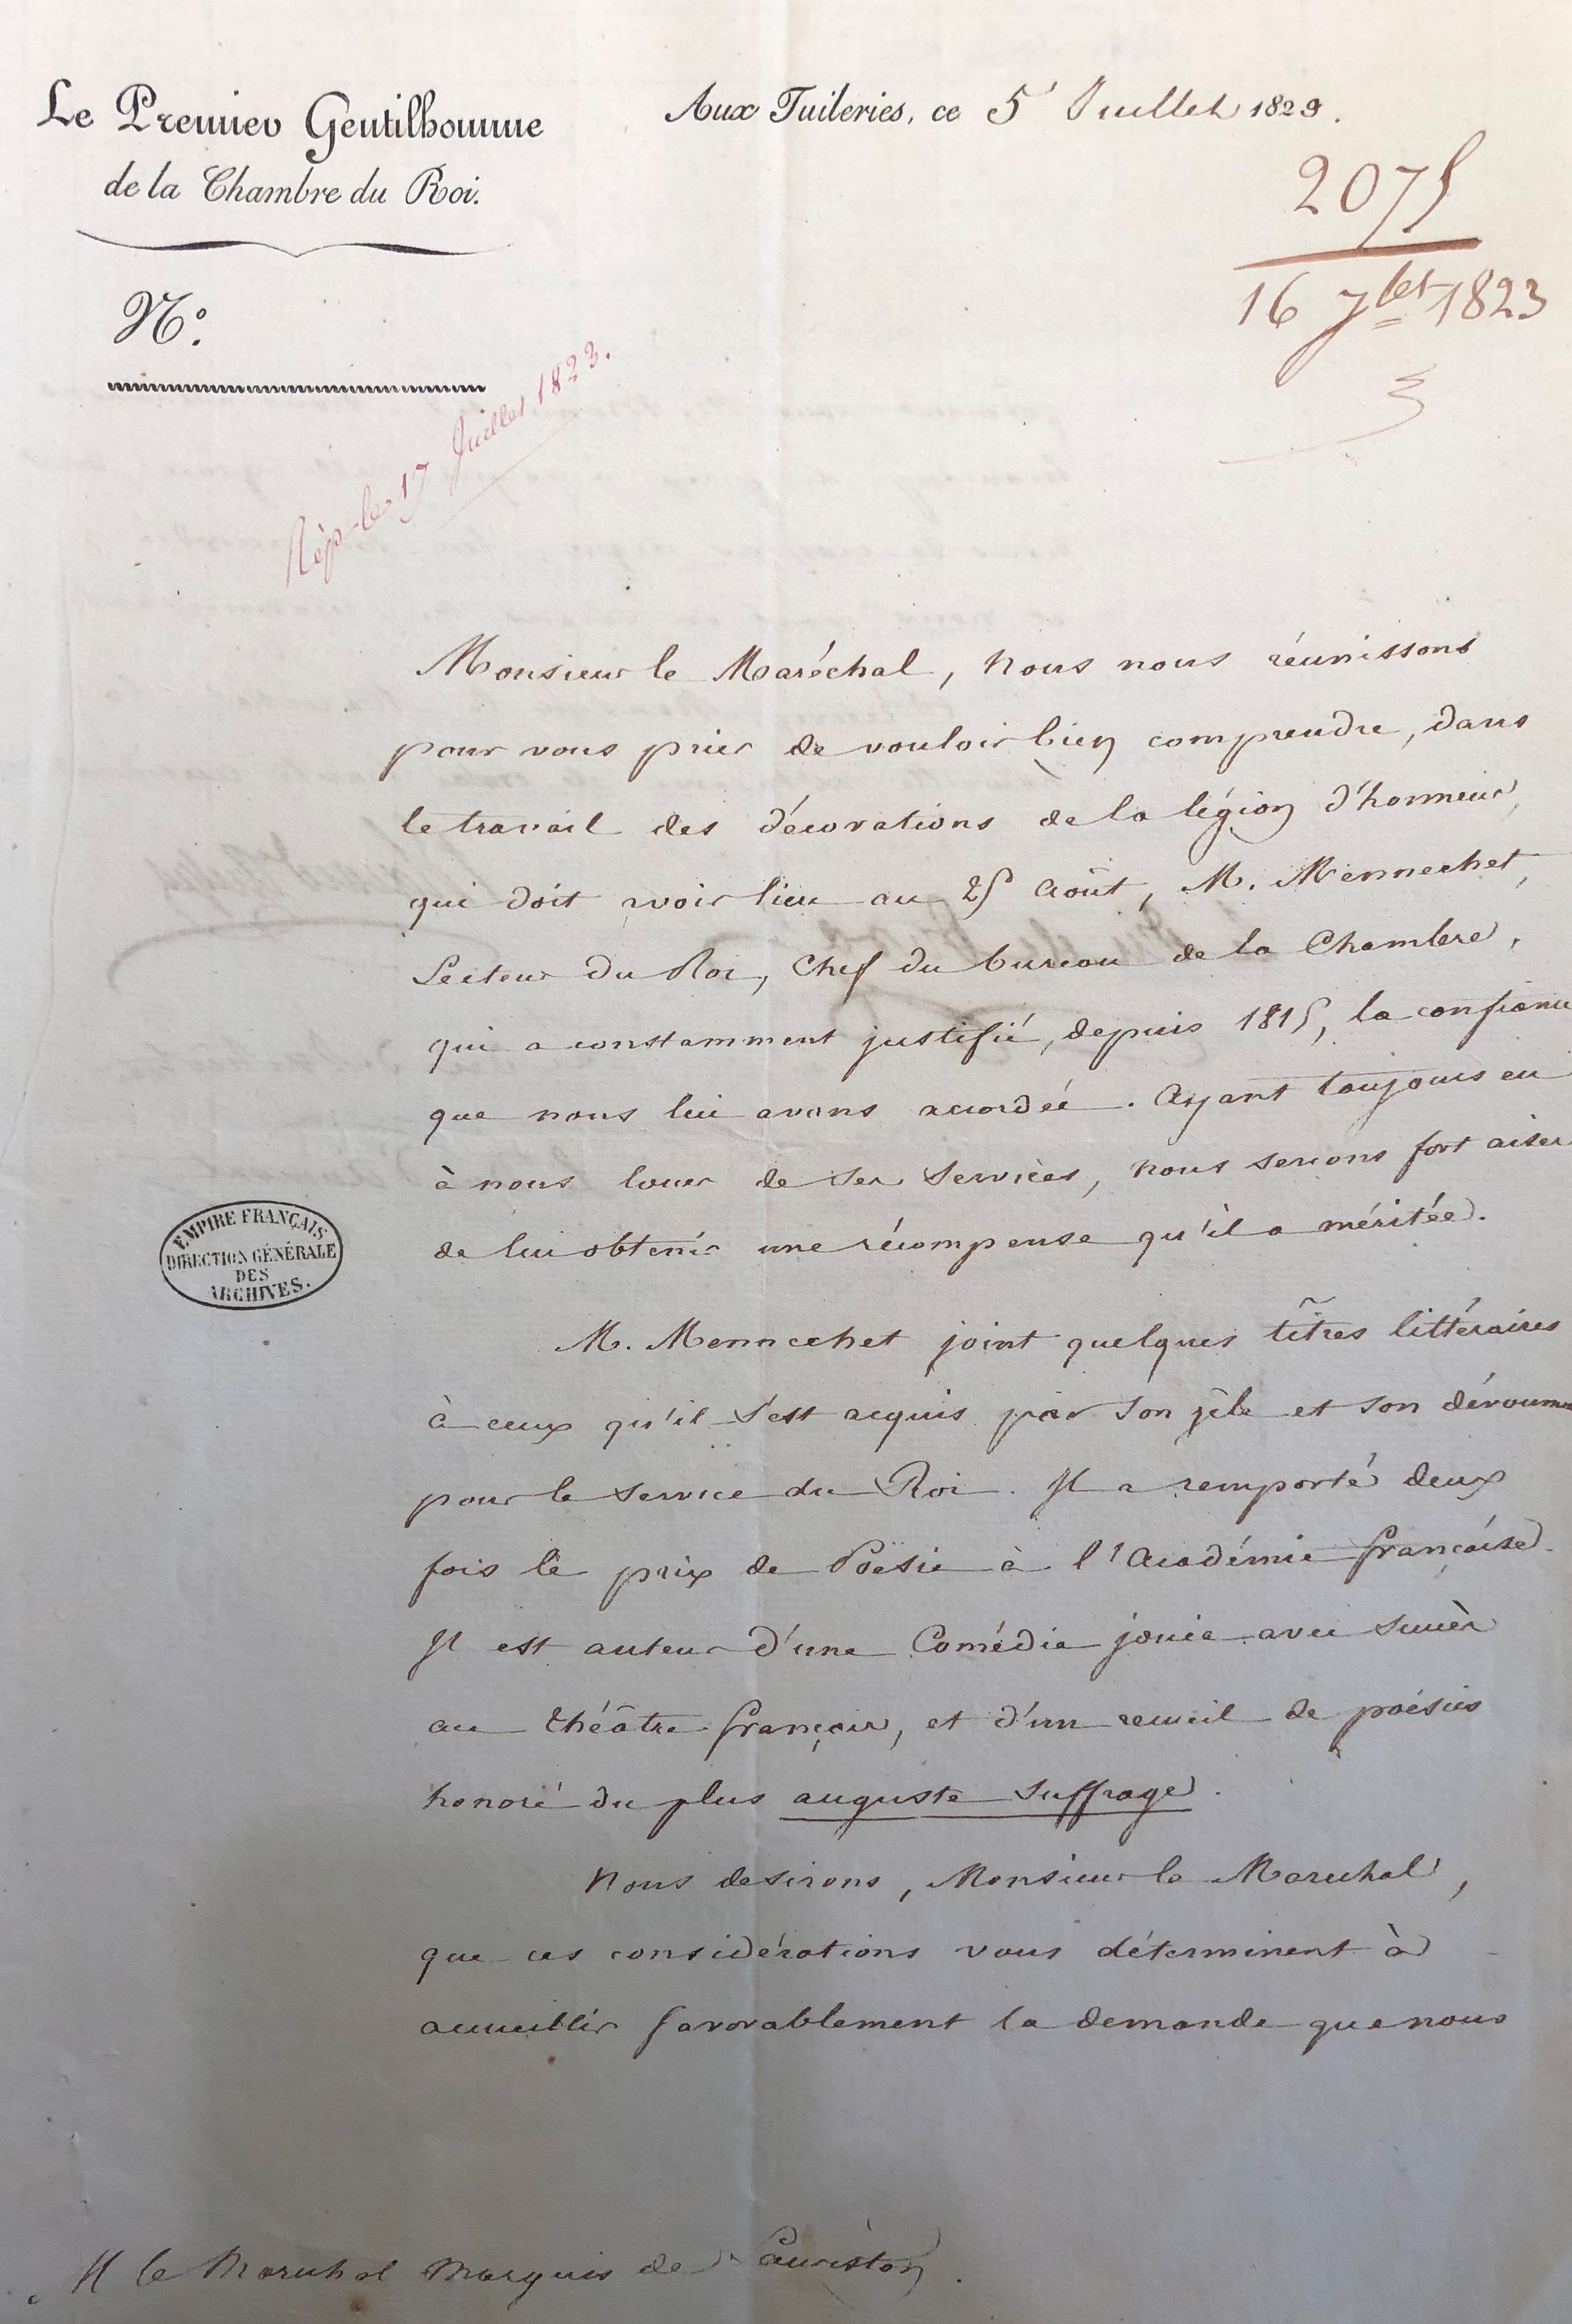 Le Premier Gentilhomme
de la Chambre du Roi.
N.º
Aux Tuileries, ce 5 Juillet 1823.
2075
16 Jlet 1823
Rép. le 17 Juillet 1823.
Monsieur le Maréchal, nous nous réunissons
pour vous prier de vouloir bien comprendre, dans
le travail des décorations de la légion d'honneur,
qui doit avoir lieu au 25 Août, M. Mennechet,
Lecteur du Roi, Chef du bureau de la Chambre,
qui a constamment justifié, depuis 1815, la confiance
que nous lui avons accordée. Ayant toujours eu
à nous louer de ses services, nous serions fort aises
de lui obtenir une récompense qu'il a méritée.
M. Mennechet joint quelques titres littéraires
à ceux qu'il s'est acquis par son zèle et son dévouem
pour le service du Roi. Il a remporté deux
fois le prix de Poësie à l'Académie française.
Il est auteur d'une Comédie jouée avec succès
au théâtre français, et d'un recueil de poésies
honoré du plus auguste suffrage.
Nous desirons, Monsieur le Marechal,
que ces considérations vous déterminent à
accueillir favorablement la demande que nous
M le Marechal Marquis de Lauriston.
EMPIRE FRANÇAIS
DIRECTION GÉNÉRALE
DES
ARCHIVES.